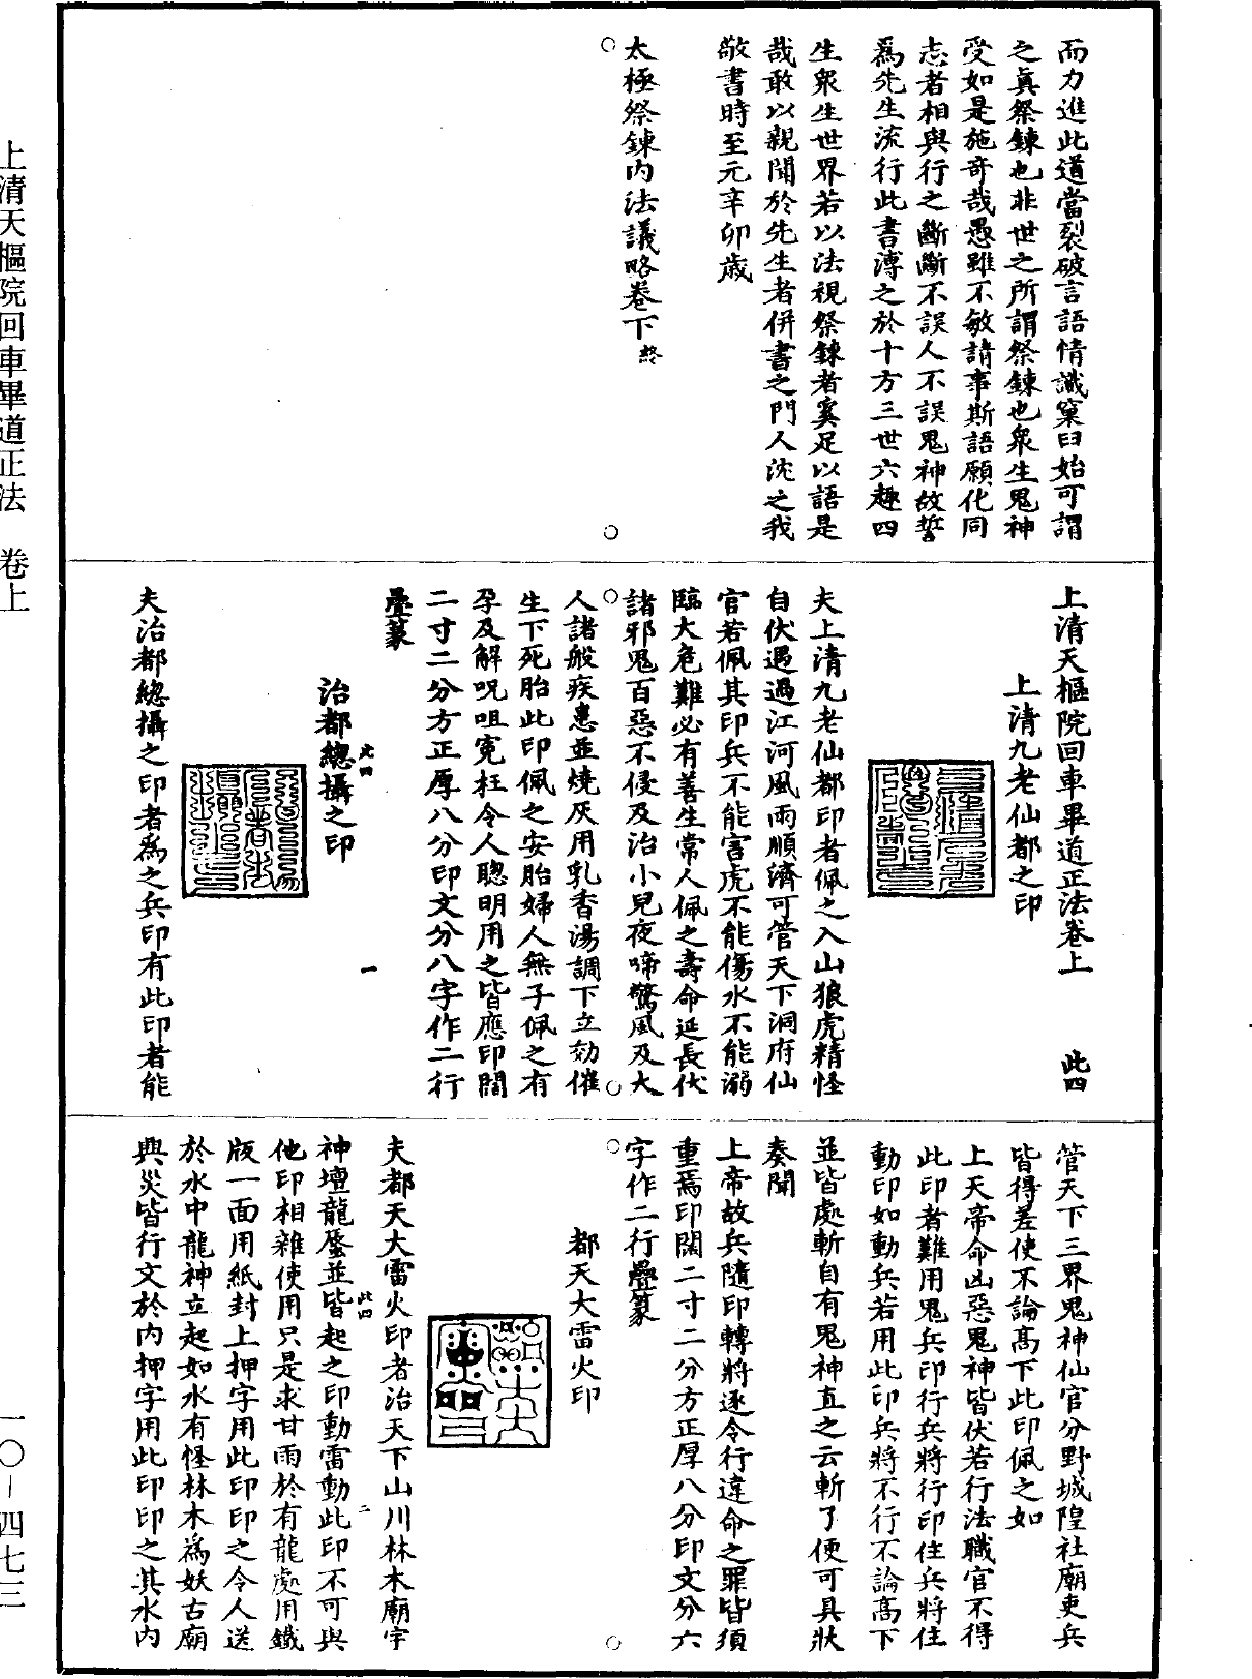 而力進此道當裂破言語情識窠臼始可謂
之眞祭鍊也非世之所謂祭鍊也衆生鬼神
受如是施奇哉愚雖不敏請事斯語願化同
志者相與行之斷斷不誤人不誤鬼神故誓
爲先生流行此書溥之於十方三世六趣四
生衆生世界若以法視祭鍊者奚足以語是
哉敢以親聞於先生者併書之門人沈之我
敬書時至元辛卯歲
太極祭鍊內法議略卷下終
上清天樞院回車畢道正法卷上 此四
上清九老仙都之印
夫上清九老仙都印者佩之入山狼虎精怪
自伏遇過江河風雨順濟可管天下洞府仙
官若佩其印兵不能害虎不能傷水不能溺
臨大危難必有善生常人佩之壽命延長伏
諸邪鬼百惡不侵及治小兒夜啼驚風及大
人諸般疾患並燒灰用乳香湯調下立効催
生下死胎此印佩之安胎婦人無子佩之有
孕及解呪咀寃枉令人聰明用之皆應印闊
二寸二分方正厚八分印文分八字作二行
疊篆
此四 一
治都總攝之印
夫治都總攝之印者爲之兵印有此印者能
管天下三界鬼神仙官分野城隍社廟吏兵
皆得差使不論高下此印佩之如
上天帝命凶惡鬼神皆伏若行法職官不得
此印者難用鬼兵印行兵將行印住兵將住
動印如動兵若用此印兵將不行不論高下
並皆處斬自有鬼神直之云斬了便可具狀
奏聞
上帝故兵隨印轉將逐令行違命之罪皆須
重焉印闊二寸二分方正厚八分印文分六
字作二行疊篆
都天大雷火印
夫都天大雷火印者治天下山川林木廟宇
此四 二
神壇龍蜃並皆起之印動雷動此印不可與
他印相雜使用只是求甘雨於有龍處用鐵
版一面用紙封上押字用此印印之令人送
於水中龍神立起如水有怪林木爲妖古廟
興災皆行文於內押字用此印印之其水內
上清天樞院回車畢道正法 卷上
一〇—四七三